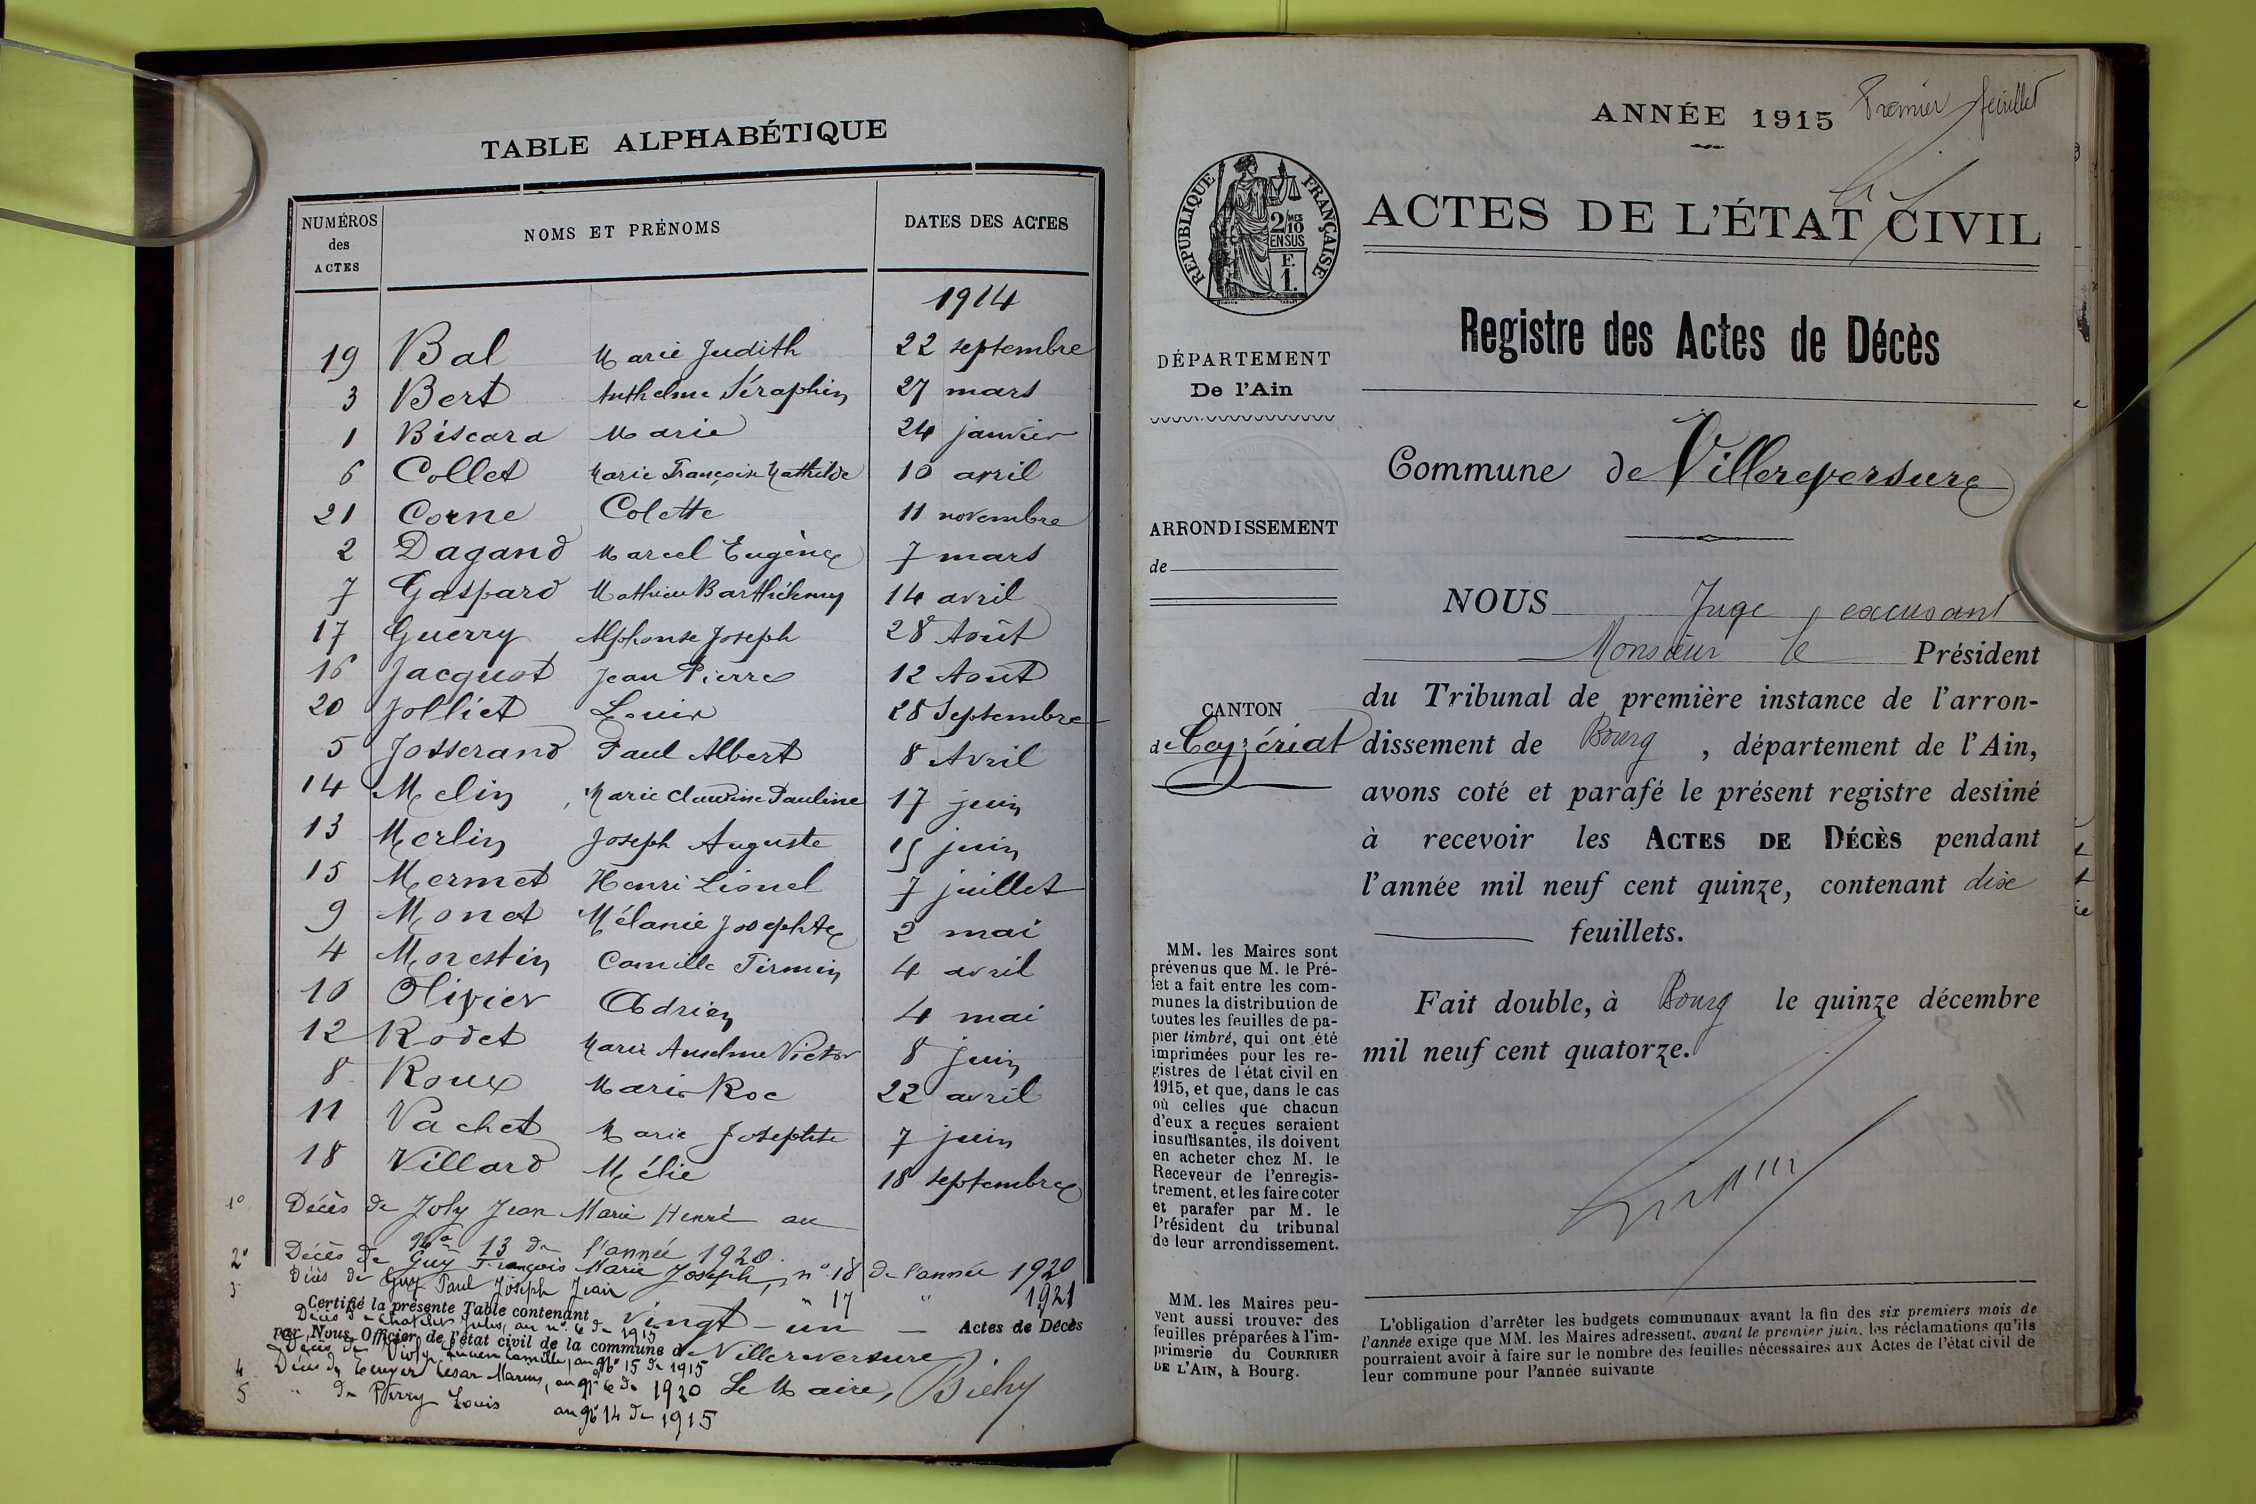 TABLE ALPHABÉTIQUE
NUMÉROS des ACTES NOMS ET PRÉNOMS DATES DES ACTES
1914
19 Bal Marie Judith 22 septembre
3 Bert Anthelme Séraphin 27 mars
1 Biscara Marie 24 janvier
6 Collet Marie Françoise Mathilde 10 avril
21 Corne Colette 11 novembre
2 Dagand Marcel Eugène 7 mars
7 Gaspard Mathieu Barthélemy 14 avril
17 Guerry Alphonse Joseph 28 Août
16 Jacquot Jean Pierre 12 Août
20 Jolliet Louis 28 Septembre
5 Josserand Paul Albert 8 Avril
14 Melin Marie Claudine Pauline 17 juin
13 Merlin Joseph Auguste 15 juin
15 Mermet Henri Lionel 7 juillet
9 Monet Mélanie Josephte 2 mai
4 Morestin Camille Firmin 4 avril
10 Olivier Adrien 4 mai
12 Rodet Marie Anselme Victor 8 juin
8 Roux Marie Roc 22 avril
11 Vachet Marie Josephte 7 juin
18 Villard Mélie 18 septembre
1° Décès de Joly Jean Marie Henri au
No 13 de l'année 1920.
2° Décès de Guy François Marie Joseph, n° 18 de l'année 1920
3 Décès de Guy Paul Joseph Jean " 17 " 1921
Certifié la présente Table contenant Vingt-un Actes de Décès
Décès de Jules, au n° 6 de 1915
par Nous, Officier de l'état civil de la commune de Villereversure
Décès de Camille, au N° 15 de 1915
4 Décès de César Marius, au N° 6 de 1920 Le Maire, Bichy
5 " de Perry Louis au N° 14 de 1915
ANNÉE 1915 Premier feuillet
RÉPUBLIQUE FRANÇAISE
2/10 MES EN SUS
F. 1.
ACTES DE L'ÉTAT CIVIL
Registre des Actes de Décès
DÉPARTEMENT
De l'Ain
Commune de Villereversure
ARRONDISSEMENT
de
CANTON
de Ceyzériat
NOUS Juge excusant
Monsieur le Président
du Tribunal de première instance de l'arron-
dissement de Bourg, département de l'Ain,
avons coté et parafé le présent registre destiné
à recevoir les ACTES DE DÉCÈS pendant
l'année mil neuf cent quinze, contenant dix
feuillets.
Fait double, à Bourg le quinze décembre
mil neuf cent quatorze.
MM. les Maires sont
prévenus que M. le Pré-
fet a fait entre les com-
munes la distribution de
toutes les feuilles de pa-
pier timbré, qui ont été
imprimées pour les re-
gistres de l'état civil en
1915, et que, dans le cas
où celles que chacun
d'eux a reçues seraient
insuffisantes, ils doivent
en acheter chez M. le
Receveur de l'enregis-
trement, et les faire coter
et parafer par M. le
Président du tribunal
de leur arrondissement.
MM. les Maires peu-
vent aussi trouver des
feuilles préparées à l'im-
primerie du COURRIER
DE L'AIN, à Bourg.
L'obligation d'arrêter les budgets communaux avant la fin des six premiers mois de
l'année exige que MM. les Maires adressent, avant le premier juin, les réclamations qu'ils
pourraient avoir à faire sur le nombre des feuilles nécessaires aux Actes de l'état civil de
leur commune pour l'année suivante